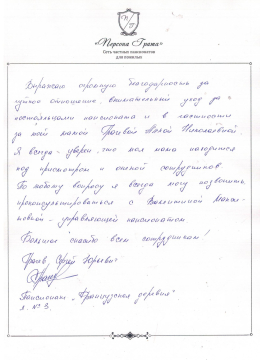 «Персона Грата»
Сеть частных пансионатов
для пожилых
Выражаю огромную благодарность за
чуткое отношение, внимательный уход за
постояльцами пансионата и в частности
за моей мамой Николаевной.
Я всегда уверен, что моя мама находится
под присмотром и опекой сотрудников.
По любому вопросу я всегда могу позвонить,
проконсультироваться с Валентиной
управляющей пансионатом.
Большое спасибо всем сотрудникам!
Юрьевич
Пансионат „Французская деревня"
№ 3.